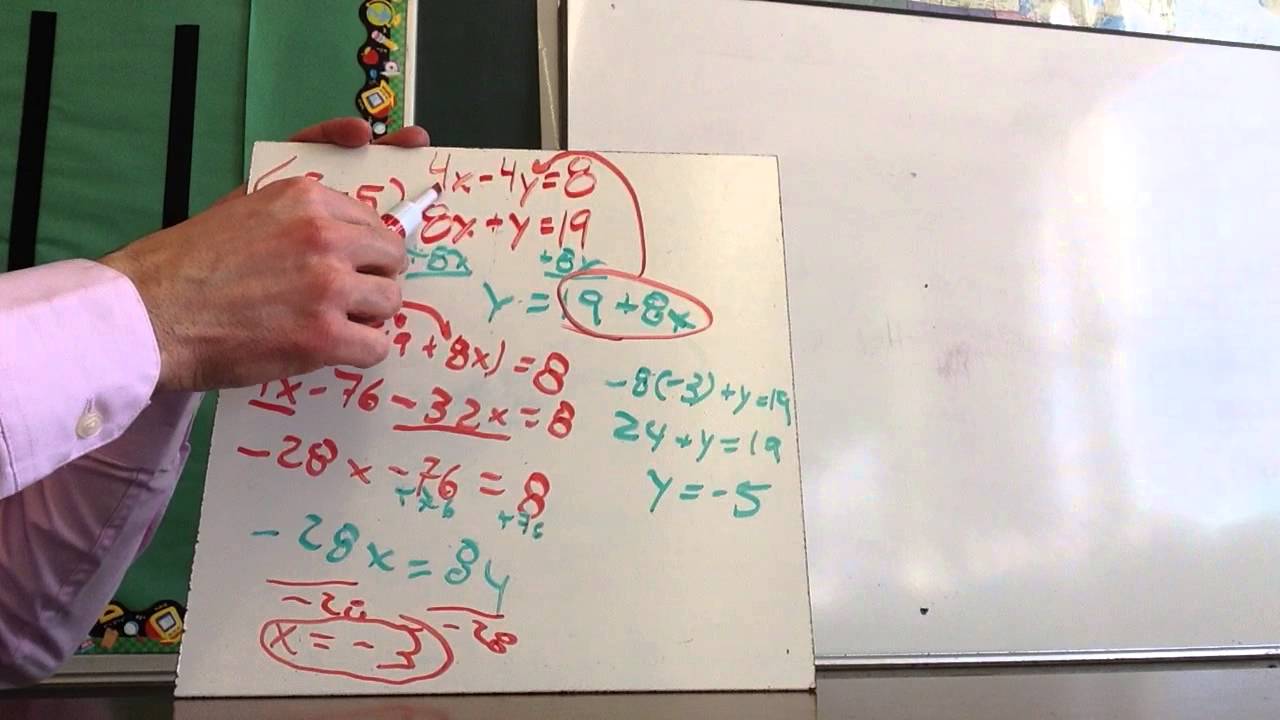 5) 4x-4y=8
8x+y=19
+8x +8x
y=19+8x
9+8x)=8
4x-76-32x=8
-28x-76=8
+76 +76
-28x=84
-28 -28
x=-3
-8(-3)+y=19
24+y=19
y=-5